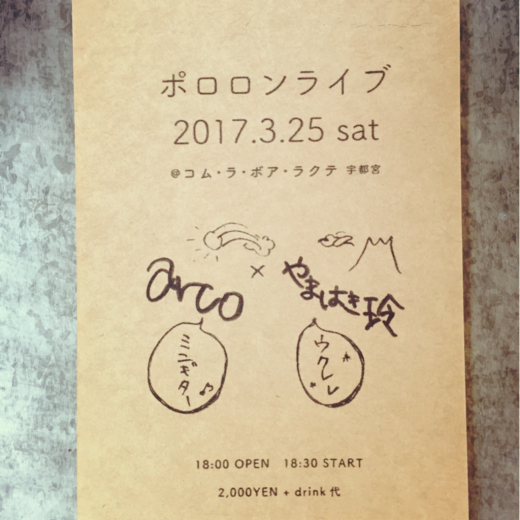 ポロロンライブ
2017.3.25 sat
@コム・ラ・ボア・ラクテ 宇都宮
arco × やまはき玲
ミニギター♪
ウクレレ
18:00 OPEN 18:30 START
2,000YEN + drink代